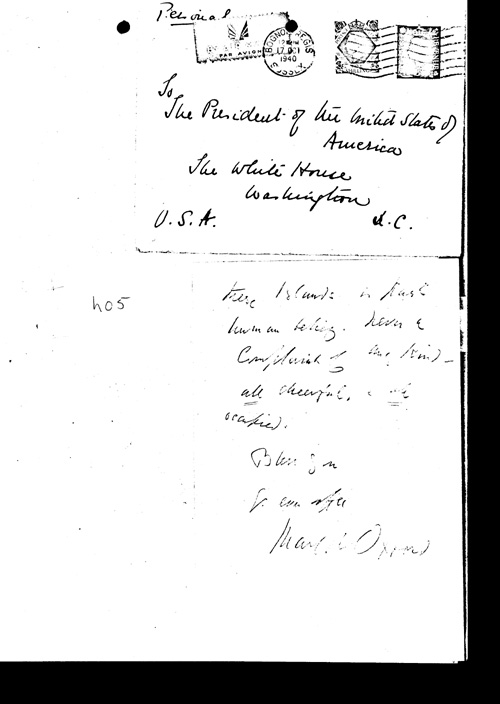 Personal
PAR AVION
BOGNOR REGIS
17 OCT
1940
SUSSEX
To
The President of the United States of
America
The White House
Washington
U.S.A. D.C.
h05
these Islands
human being. Never a
Complaint of any kind –
all cheerful, all
occupied.
Bless you
Margot Oxford